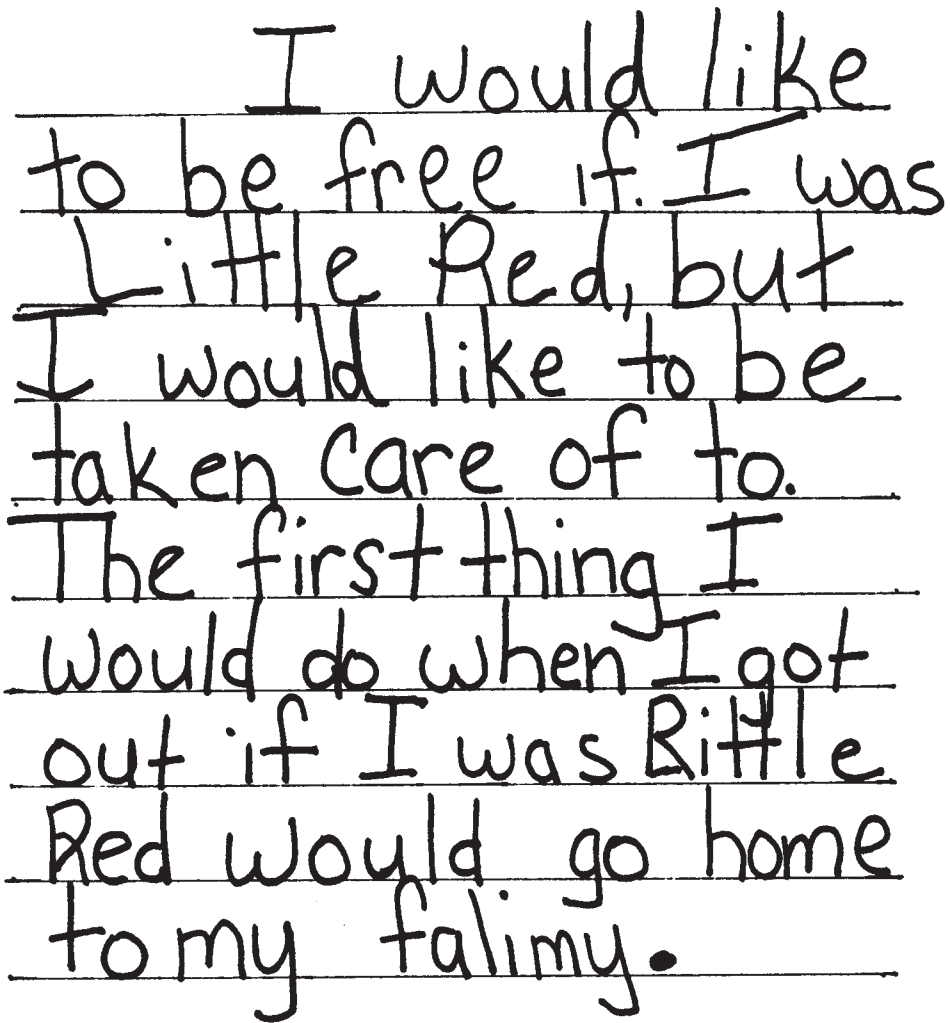 I would like
to be free if I was
Little Red, but
I would like to be
taken care of to.
The first thing I
would do when I got
out if I was Rittle
Red would go home
to my falimy.